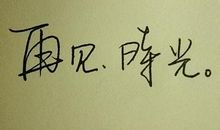 再见.时光。